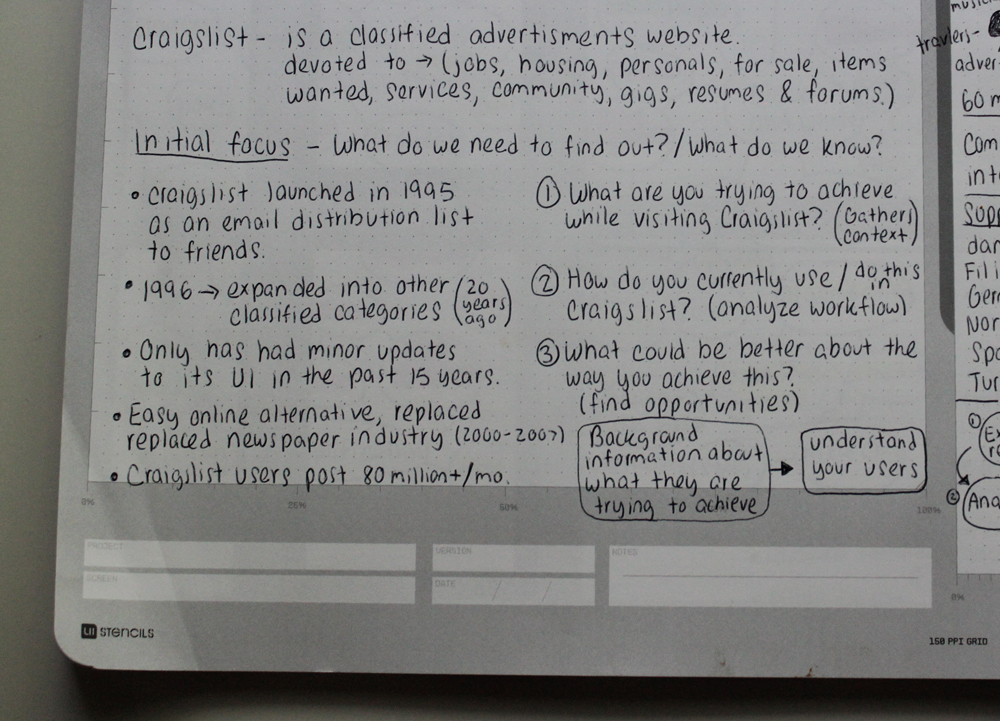 Craigslist - is a classified advertisments website.
devoted to → (jobs, housing, personals, for sale, items
wanted, services, community, gigs, resumes & forums.)
Initial focus - What do we need to find out?/What do we know?
• craigslist launched in 1995
as an email distribution list
to friends.
• 1996 → expanded into other (20 years ago)
classified categories
• Only has had minor updates
to its UI in the past 15 years.
• Easy online alternative, replaced
replaced newspaper industry (2000-2007)
• Craigslist users post 80 million+/mo.
① What are you trying to achieve
while visiting Craigslist? (Gathers context)
② How do you currently use / do this in
Craigslist? (analyze workflow)
③ What could be better about the
way you achieve this?
(find opportunities)
Background
information about
what they are
trying to achieve
→
understand
your users
0% 25% 50% 100%
PROJECT
SCREEN
VERSION
DATE / /
NOTES
UI STENCILS
travlers-
adver
60 m
Com
inte
Supp
dan
Fili
Ger
Nor
Spa
Tur
①
Ex
②
Ana
0%
150 PPI GRID